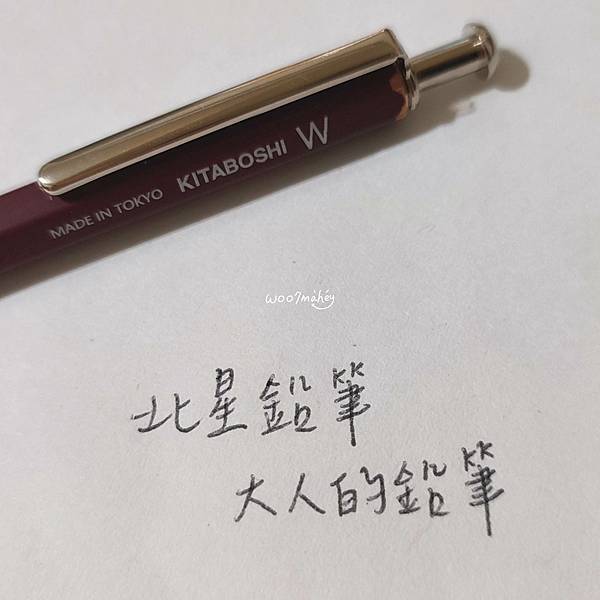 MADE IN TOKYO KITABOSHI W
woo7máhéy
北星鉛筆
大人的鉛筆